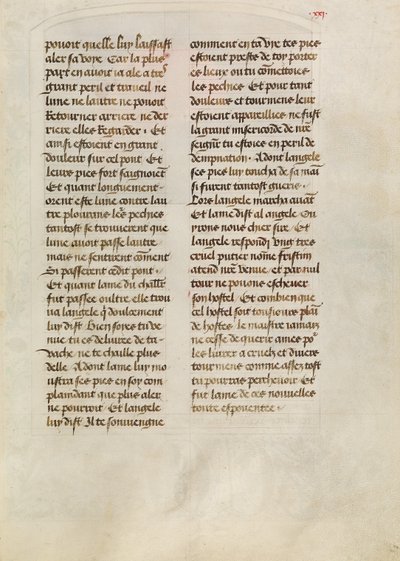 .xxi.
pouoit quelle luy laissast
aler sa voye Car la plus
part en auoit ia ale a tres
grant peril et traueil ne
lune ne lautre ne pouoit
Retourner arriere ne der
riere elles Regarder . Et
ainsi estoient en grant
douleur sur cel pont Et
leurs pies fort saignoient
Et quant longuement
orent este lune contre lau
tre plourans les pechies
tantost se trouuerent que
lune auoit passe lautre
mais ne sentirent comment
Si passerent cedit pont .
Et quant lame du cheualier
fut passee oultre elle trou
ua langele qui doulcement
luy dist Bien soies tu ve
nue tu es deliuree de ta
vache ne te chaille plus
delle . Adont lame luy mo
ustra ses pies en soy com
plaindant que plus aler
ne pourroit . Et langele
luy dist Il te souuiengne
comment en ta vie tes pies
estoient prestz de toy porter
es lieux ou tu commettoies
les pechies Et pour tant
douleurs et tourmens leur
estoient appareillies ne fust
la grant misericorde de nostre
seigneur tu estoies en peril de
dempnation . Adont langele
ses pies luy toucha de sa main
si furent tantost gueris .
Lors langele marcha auant
Et lame dist al angele Ou
yrons nous chier sire . Et
langele respondi Ung tres
cruel putier nomme fristin
atend nostre venue et par nul
tour ne pouons escheuer
son hostel Et combien que
cel hostel soit tousiours plain
de hostes le maistre iamais
ne cesse de querir ames pour
les liurer a cruelz et diuers
tourmens comme assez tost
tu pourras percheuoir Et
fut lame de ces nouuelles
toute espouentee .